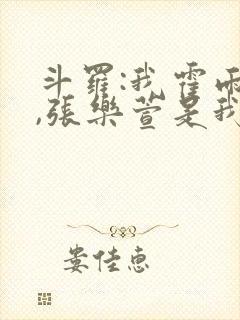 斗羅:我霍雨
,張樂萱是我
娄佳惠